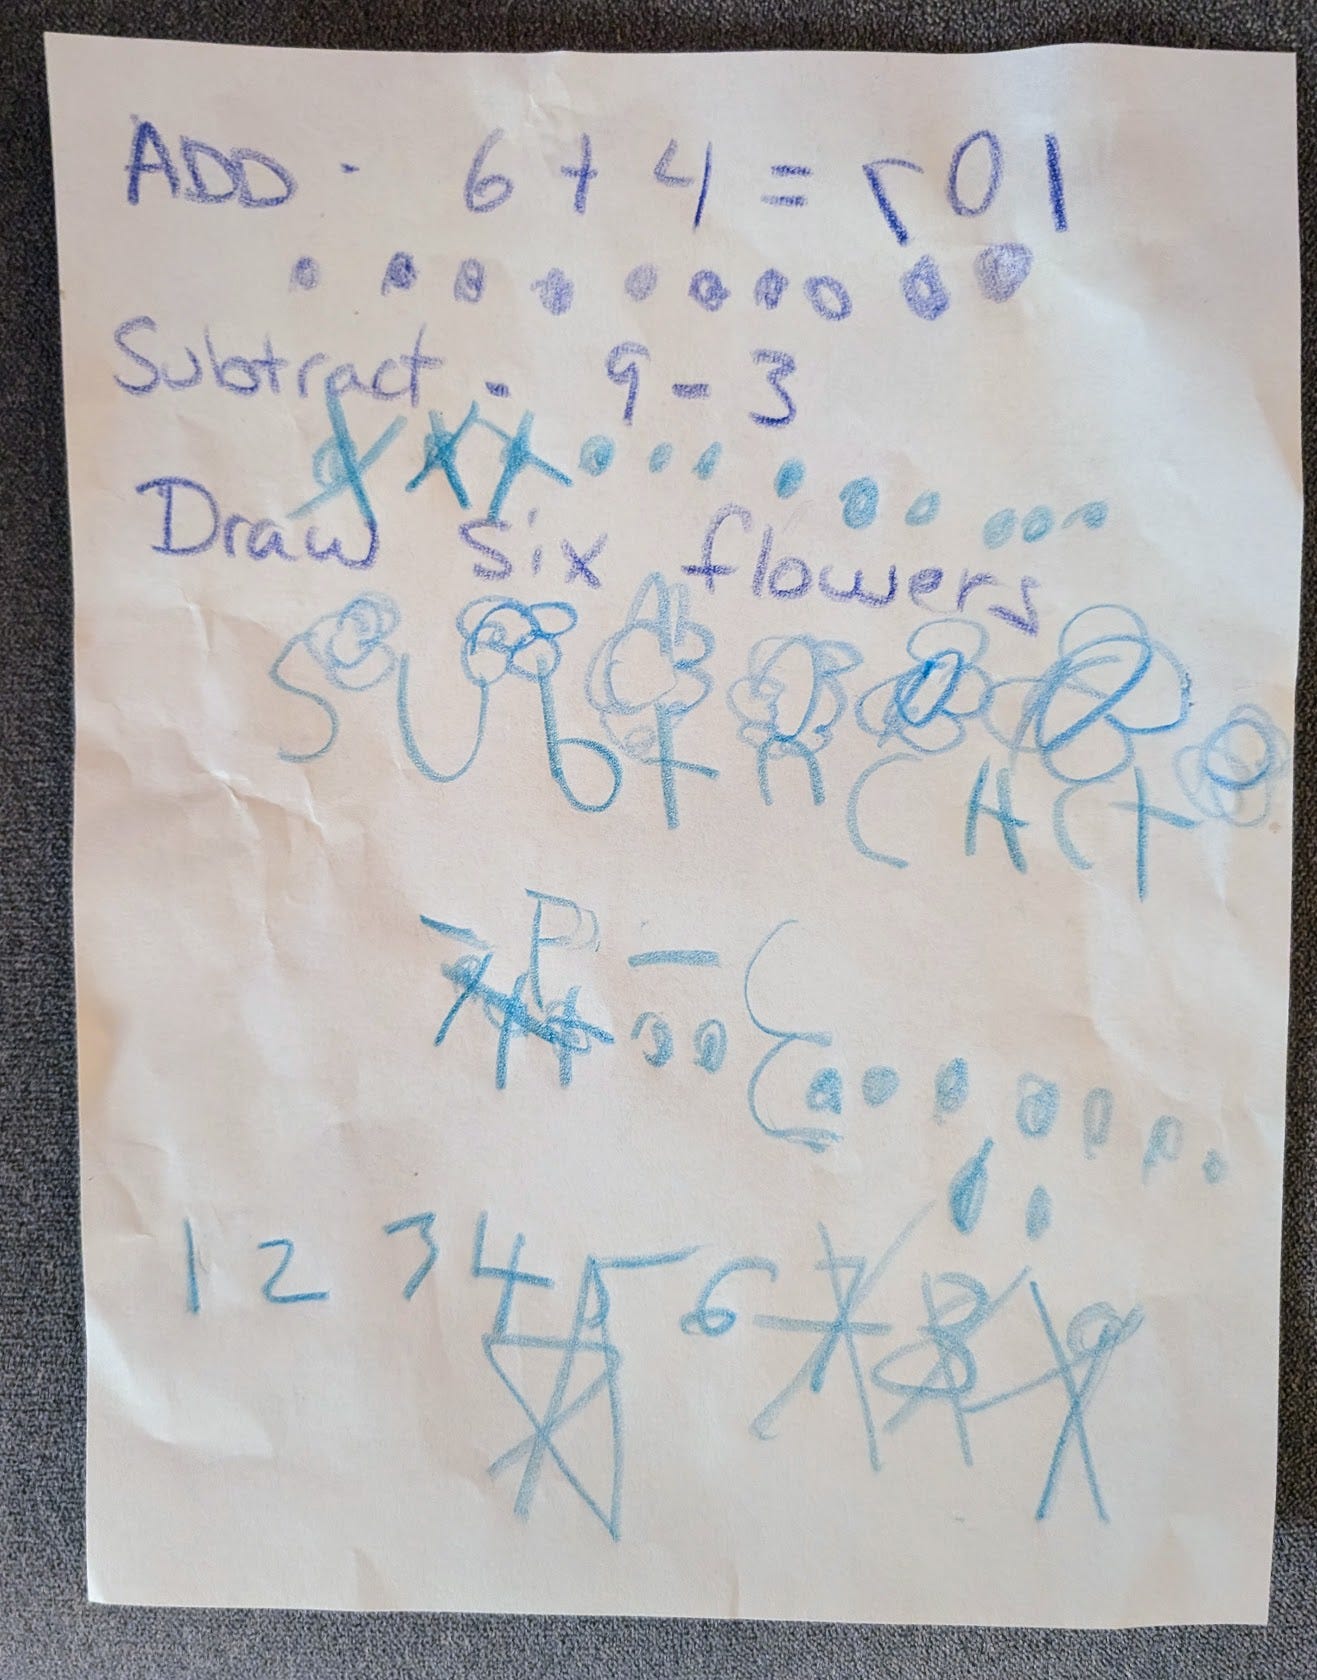 ADD - 6 + 4 = 701
Subtract - 9 - 3
Draw six flowers
SUbtRCHCT
1 2 3 4 5 6 7 8 9